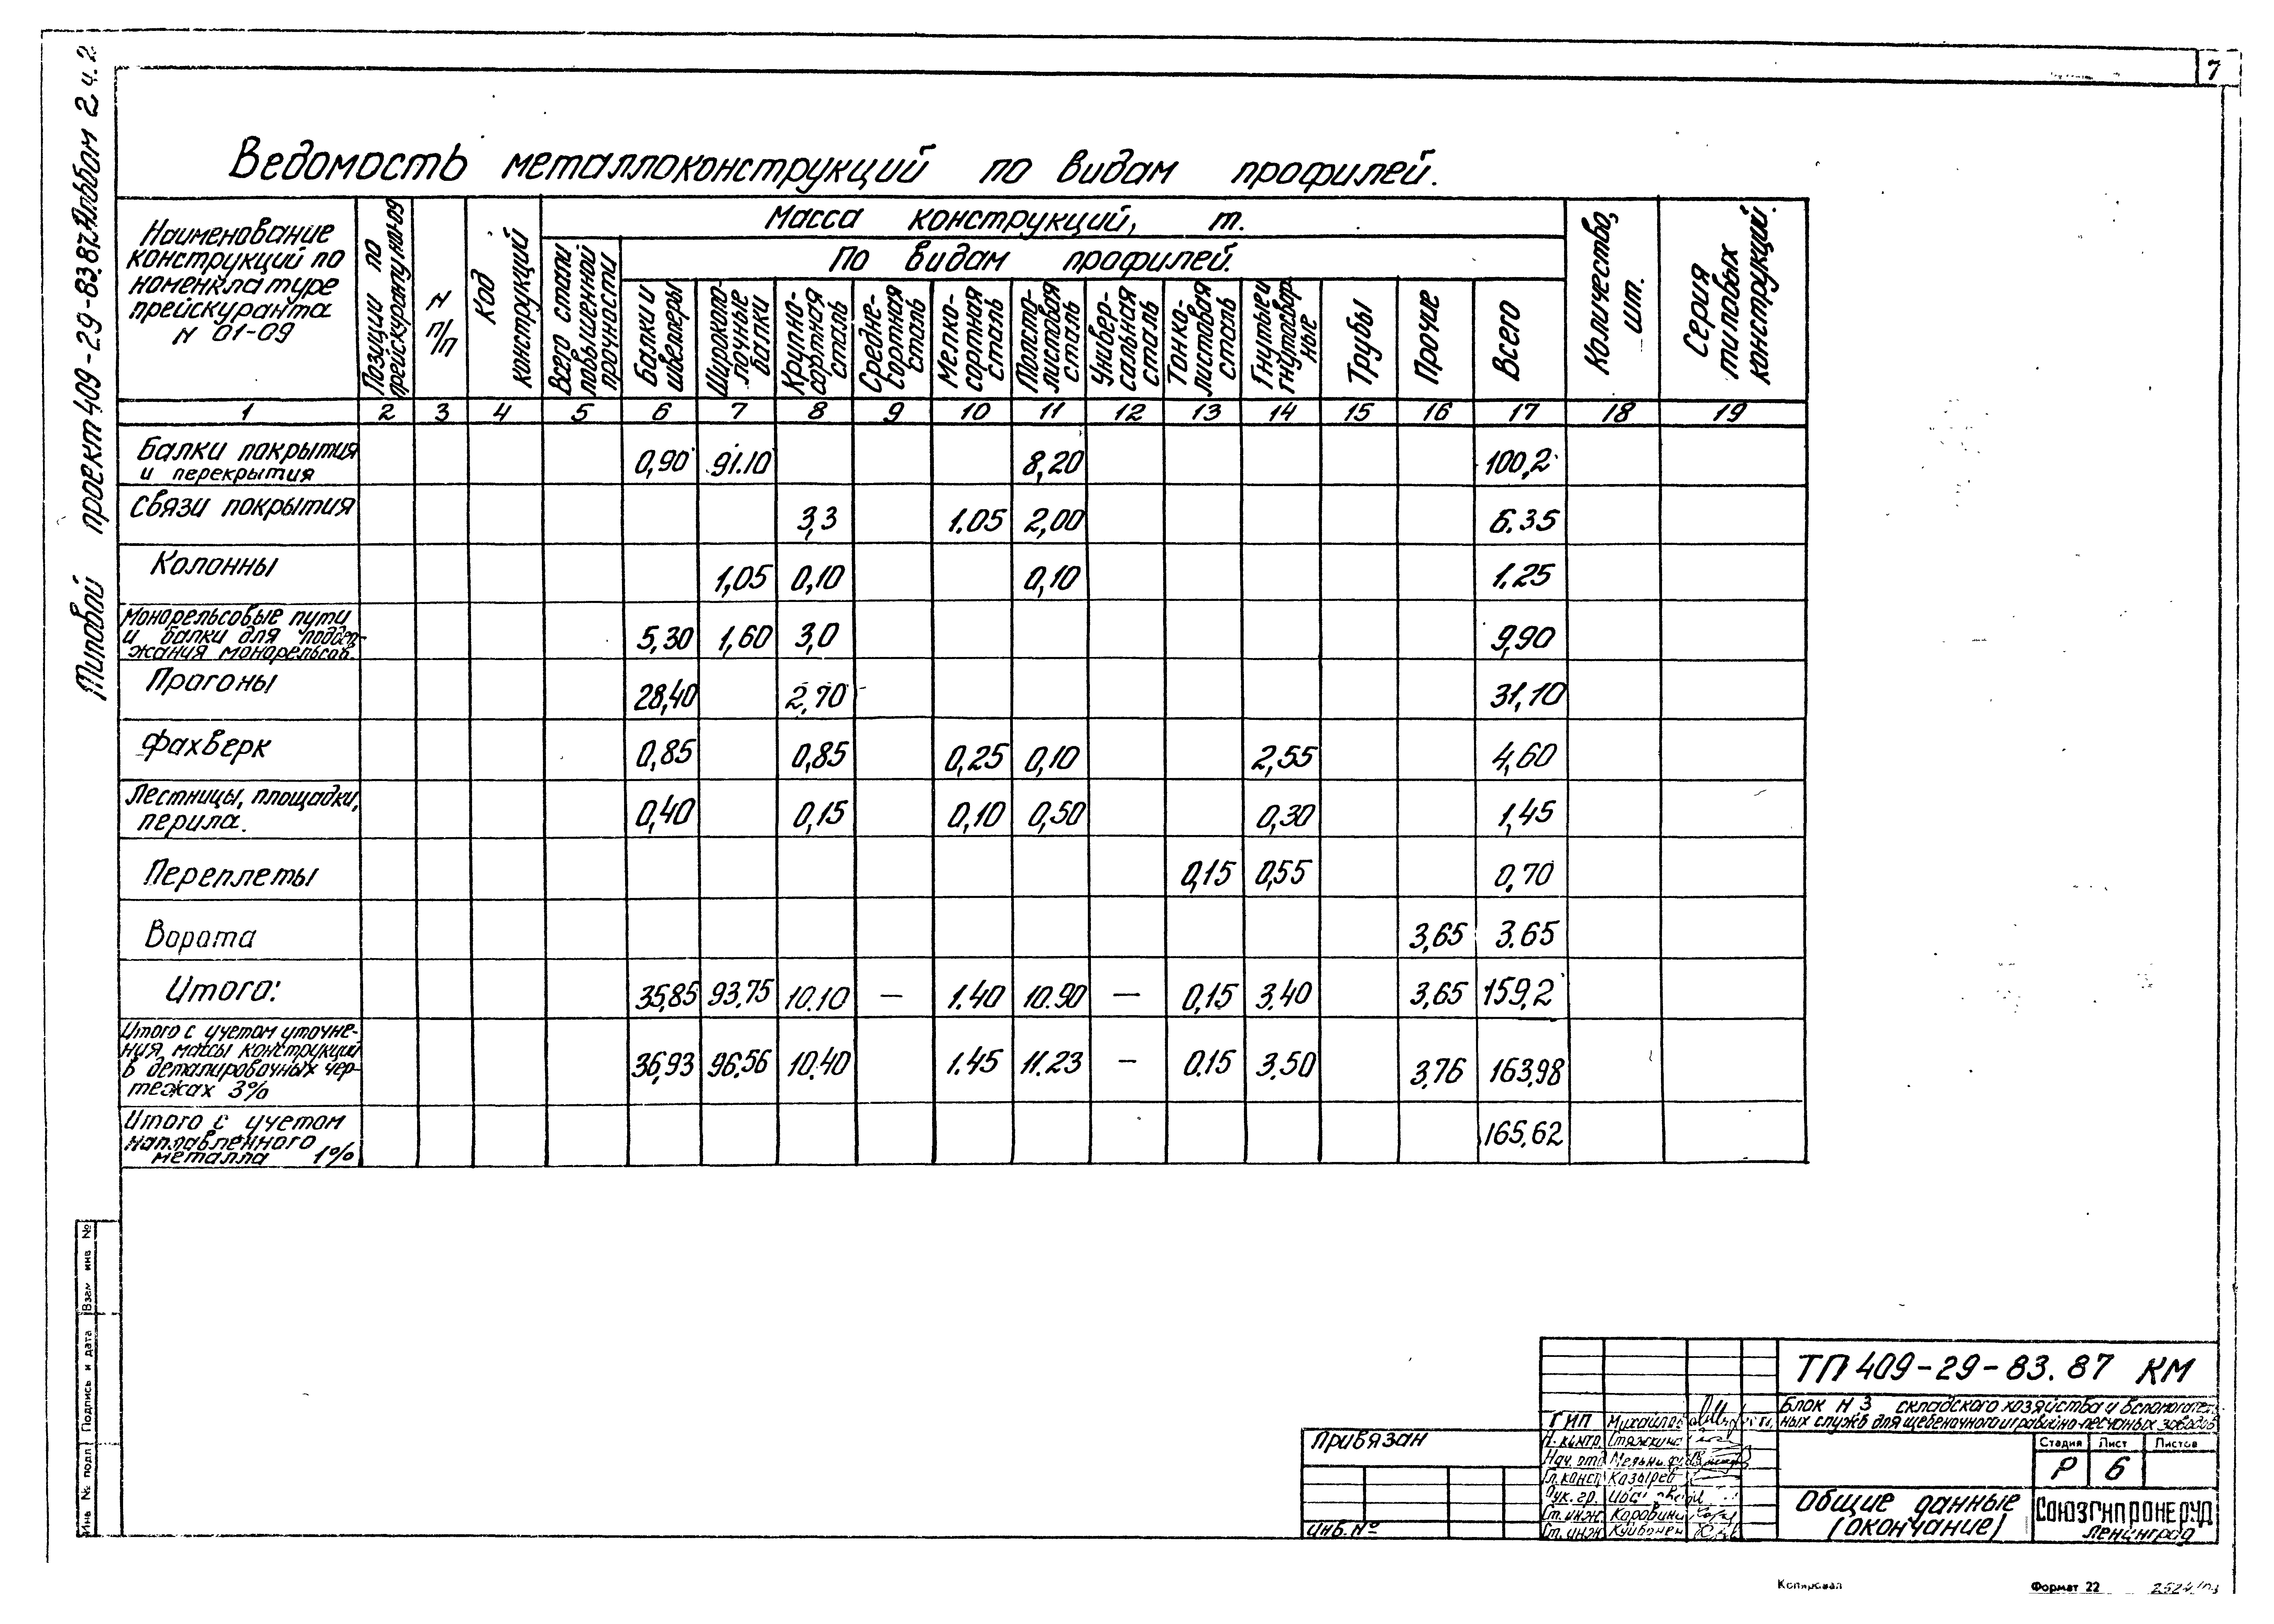 7
Типовой проект 409-29-83.87 Альбом 2 ч. 2
Ведомость металлоконструкций по видам профилей.
Наименование конструкций по номенклатуре прейскуранта N 01-09
Позиции по прейскуранту N01-09
N п/п
Код конструкций
Масса конструкций, т.
Всего стали повышенной прочности
По видам профилей.
Балки и швеллеры
Широкополочные балки
Крупно-сортная сталь
Средне-сортная сталь
Мелко-сортная сталь
Толсто-листовая сталь
Универ-сальная сталь
Тонко-листовая сталь
Гнутые и гнутосвар ные
Трубы
Прочие
Всего
Количество, шт.
Серия типовых конструкций.
1 2 3 4 5 6 7 8 9 10 11 12 13 14 15 16 17 18 19
Балки покрытия
и перекрытия 0,90 91.10 8,20 100,2
Связи покрытия 3,3 1.05 2,00 6.35
Колонны 1,05 0,10 0,10 1.25
Монорельсовые пути
и балки для поддер- 5,30 1,60 3,0 9,90
жания монорельсов.
Прагоны 28,40 2,70 31,10
Фахверк 0,85 0,85 0,25 0,10 2,55 4,60
Лестницы, площадки,
перила. 0,40 0,15 0,10 0,50 0,30 1,45
Переплеты 0,15 0,55 0,70
Ворота 3,65 3.65
Итого: 35,85 93,75 10.10 — 1.40 10.90 — 0,15 3.40 3,65 159,2
Итого с учетом уточне-
ния массы конструкций
в деталировочных чер- 36,93 96.56 10.40 1.45 11.23 — 0.15 3.50 3,76 163,98
тежах 3%
Итого с учетом
наплавленного 165,62
металла 1%
Взам инв №
Подпись и дата
Инв № подл
Привязан
Инв. №
ТП 409-29-83.87 КМ
Блок N 3 складского хозяйства и вспомогатель
ных служб для щебеночного и гравийно-песчаных заводов
ГИП Михайлов
Н. контр. Стяжкина
Нач. отд
Гл. конст. Козырев
Рук. гр.
Ст. инж.
Ст. инж.
Стадия Лист Листов
Р 6
Общие данные
(окончание)
СОЮЗГИПРОНЕРУД
Ленинград
Копировал
Формат 22